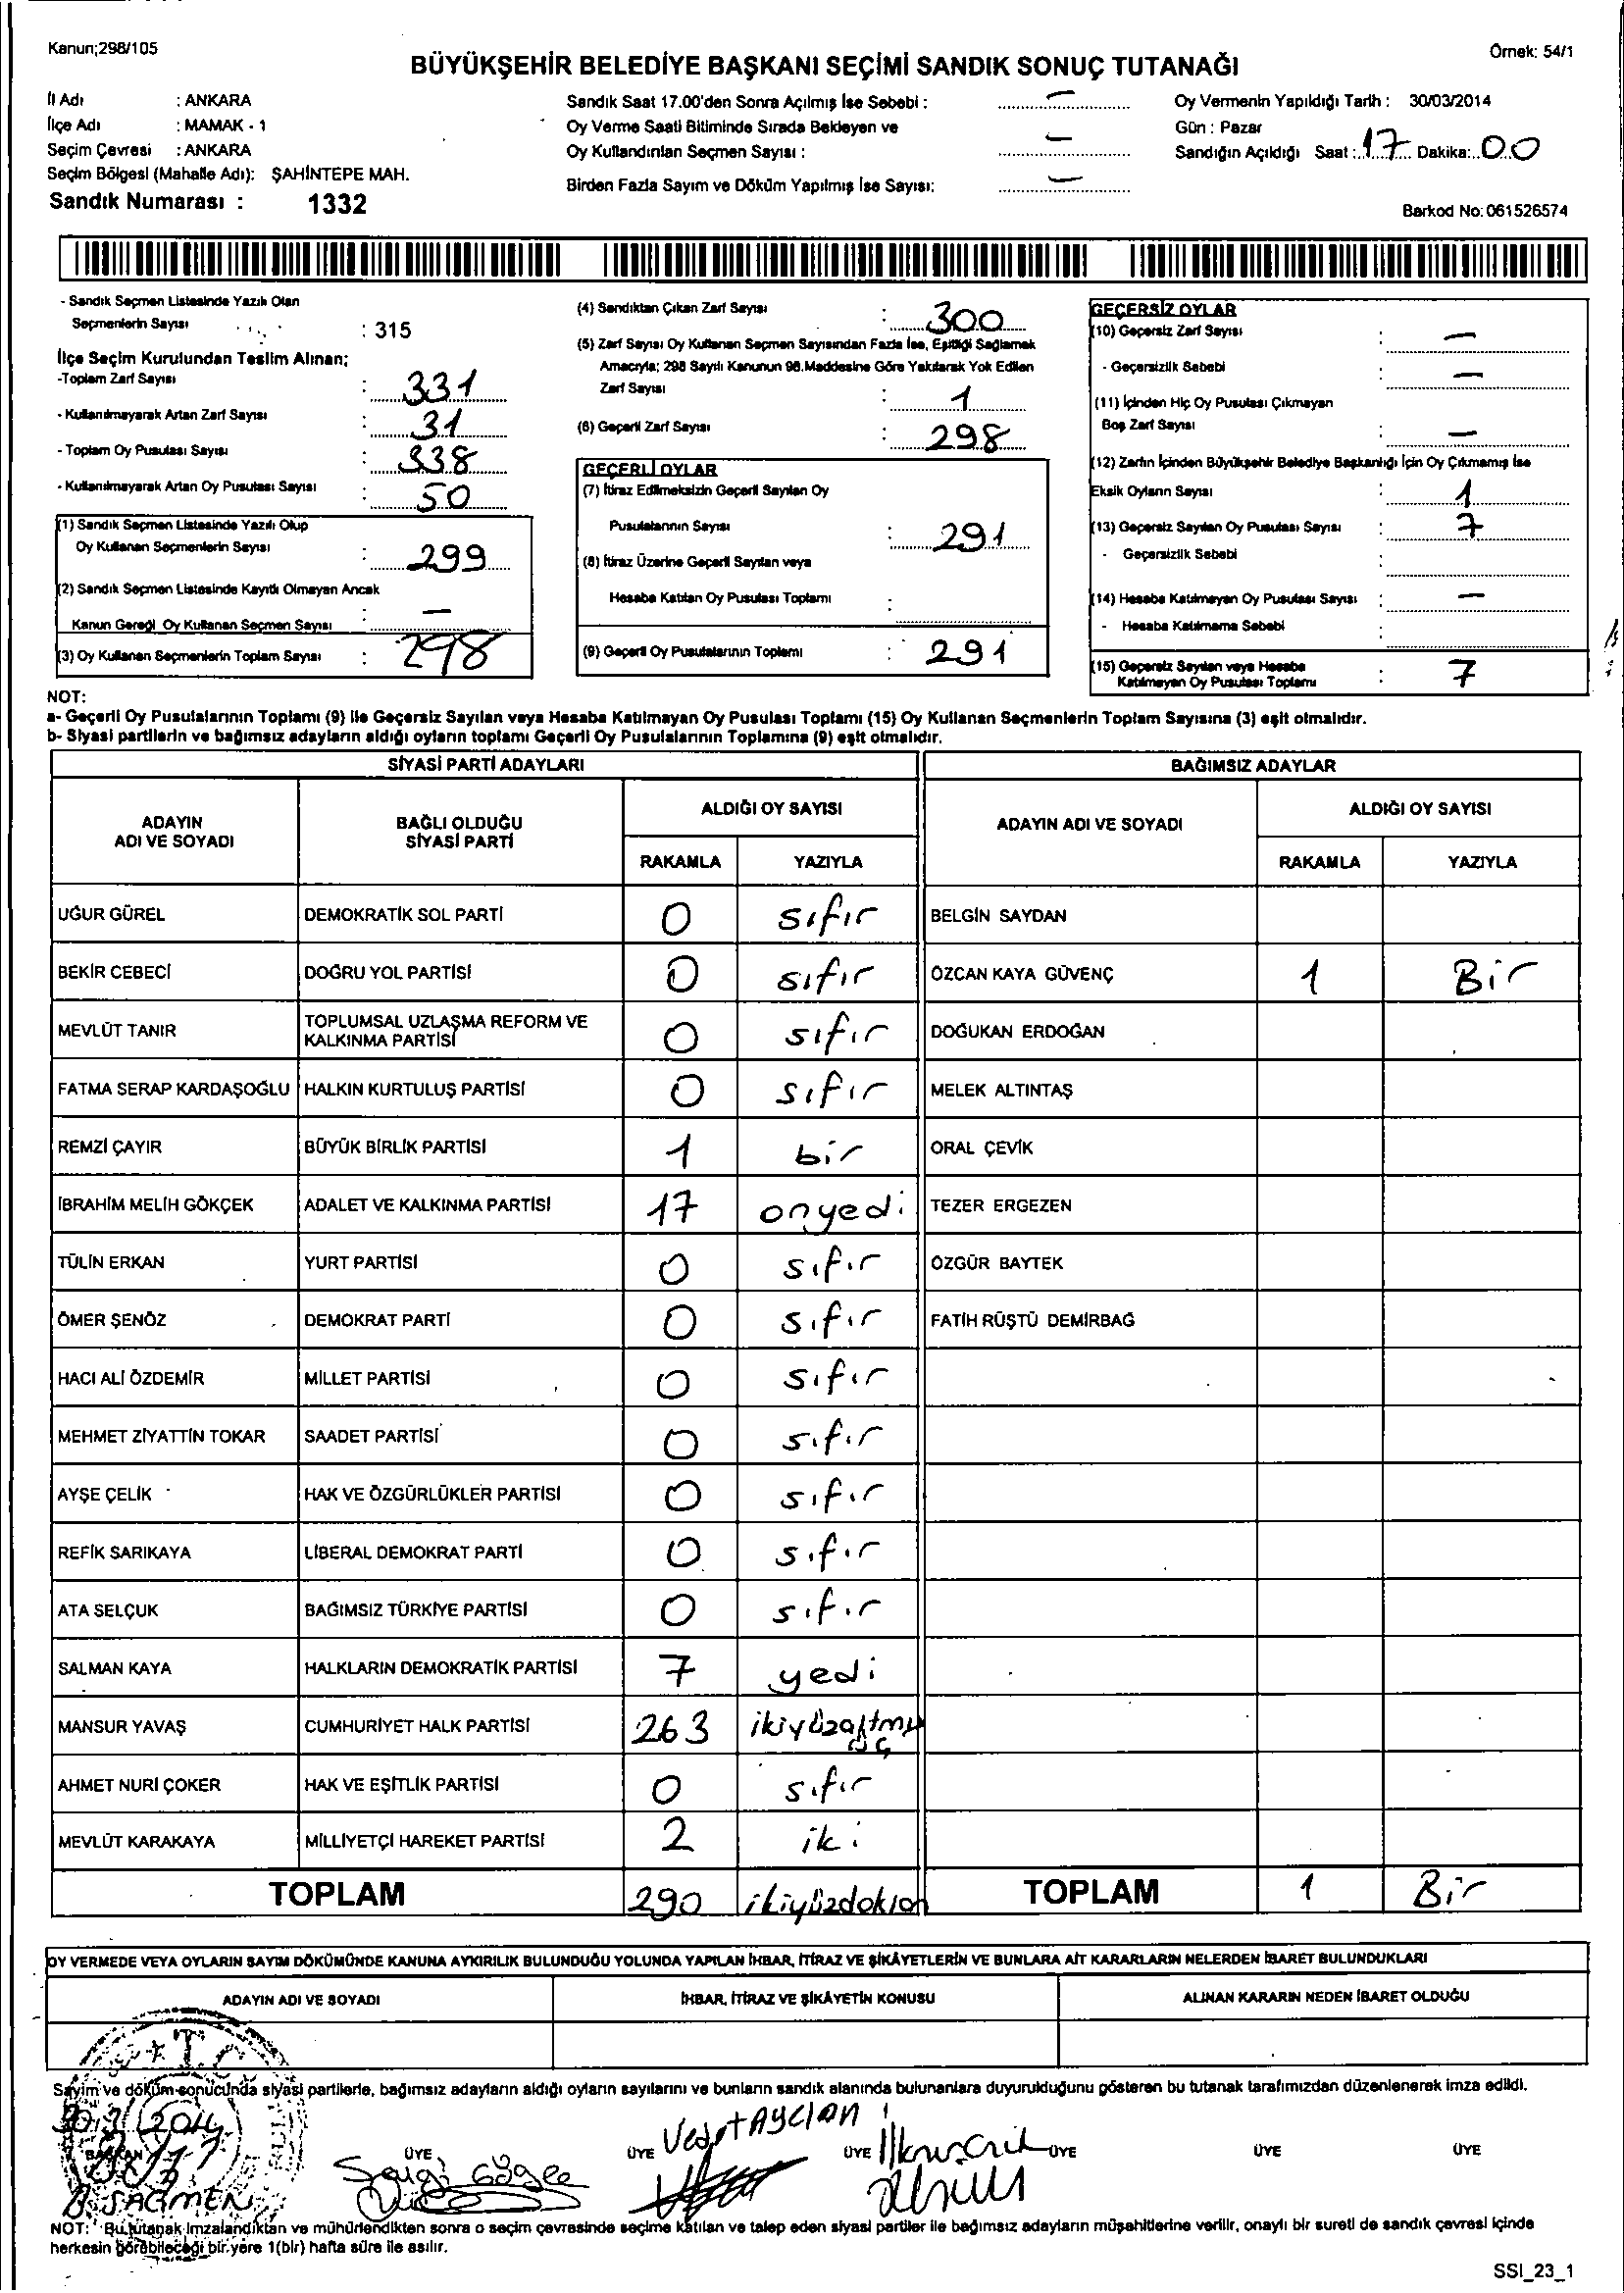 Kanun;298/105
Örnek: 54/1
BÜYÜKŞEHİR BELEDİYE BAŞKANI SEÇİMİ SANDIK SONUÇ TUTANAĞI
İl Adı : ANKARA
İlçe Adı : MAMAK - 1
Seçim Çevresi : ANKARA
Seçim Bölgesi (Mahalle Adı): ŞAHİNTEPE MAH.
Sandık Numarası : 1332
Sandık Saat 17.00'den Sonra Açılmış İse Sebebi : —
Oy Verme Saati Bitiminde Sırada Bekleyen ve
Oy Kullandırılan Seçmen Sayısı : —
Birden Fazla Sayım ve Döküm Yapılmış İse Sayısı: —
Oy Vermenin Yapıldığı Tarih : 30/03/2014
Gün : Pazar
Sandığın Açıldığı Saat : 17 Dakika: 00
Barkod No: 061526574
- Sandık Seçmen Listesinde Yazılı Olan
Seçmenlerin Sayısı : 315
İlçe Seçim Kurulundan Teslim Alınan;
-Toplam Zarf Sayısı : 331
- Kullanılmayarak Artan Zarf Sayısı : 31
- Toplam Oy Pusulası Sayısı : 338
- Kullanılmayarak Artan Oy Pusulası Sayısı : 50
(1) Sandık Seçmen Listesinde Yazılı Olup
Oy Kullanan Seçmenlerin Sayısı : 299
(2) Sandık Seçmen Listesinde Kayıtlı Olmayan Ancak
Kanun Gereği Oy Kullanan Seçmen Sayısı : —
(3) Oy Kullanan Seçmenlerin Toplam Sayısı : 298
(4) Sandıktan Çıkan Zarf Sayısı : 300
(5) Zarf Sayısı Oy Kullanan Seçmen Sayısından Fazla İse, Eşitliği Sağlamak
Amacıyla; 298 Sayılı Kanunun 98.Maddesine Göre Yakılarak Yok Edilen
Zarf Sayısı : 1
(6) Geçerli Zarf Sayısı : 298
GEÇERLİ OYLAR
(7) İtiraz Edilmeksizin Geçerli Sayılan Oy
Pusulalarının Sayısı : 291
(8) İtiraz Üzerine Geçerli Sayılan veya
Hesaba Katılan Oy Pusulası Toplamı :
(9) Geçerli Oy Pusulalarının Toplamı : 291
GEÇERSİZ OYLAR
(10) Geçersiz Zarf Sayısı : —
- Geçersizlik Sebebi : —
(11) İçinden Hiç Oy Pusulası Çıkmayan
Boş Zarf Sayısı : —
(12) Zarfın İçinden Büyükşehir Belediye Başkanlığı İçin Oy Çıkmamış İse
Eksik Oyların Sayısı : 1
(13) Geçersiz Sayılan Oy Pusulası Sayısı : 7
- Geçersizlik Sebebi :
(14) Hesaba Katılmayan Oy Pusulası Sayısı : —
- Hesaba Katılmama Sebebi :
(15) Geçersiz Sayılan veya Hesaba
Katılmayan Oy Pusulası Toplamı : 7
NOT:
a- Geçerli Oy Pusulalarının Toplamı (9) ile Geçersiz Sayılan veya Hesaba Katılmayan Oy Pusulası Toplamı (15) Oy Kullanan Seçmenlerin Toplam Sayısına (3) eşit olmalıdır.
b- Siyasi partilerin ve bağımsız adayların aldığı oyların toplamı Geçerli Oy Pusulalarının Toplamına (9) eşit olmalıdır.
SİYASİ PARTİ ADAYLARI BAĞIMSIZ ADAYLAR
ADAYIN ADI VE SOYADI BAĞLI OLDUĞU SİYASİ PARTİ ALDIĞI OY SAYISI ADAYIN ADI VE SOYADI ALDIĞI OY SAYISI
RAKAMLA YAZIYLA RAKAMLA YAZIYLA
UĞUR GÜREL DEMOKRATİK SOL PARTİ 0 sıfır BELGİN SAYDAN
BEKİR CEBECİ DOĞRU YOL PARTİSİ 0 sıfır ÖZCAN KAYA GÜVENÇ 1 Bir
MEVLÜT TANIR TOPLUMSAL UZLAŞMA REFORM VE KALKINMA PARTİSİ 0 sıfır DOĞUKAN ERDOĞAN
FATMA SERAP KARDAŞOĞLU HALKIN KURTULUŞ PARTİSİ 0 sıfır MELEK ALTINTAŞ
REMZİ ÇAYIR BÜYÜK BİRLİK PARTİSİ 1 bir ORAL ÇEVİK
İBRAHİM MELİH GÖKÇEK ADALET VE KALKINMA PARTİSİ 17 onyedi TEZER ERGEZEN
TÜLİN ERKAN YURT PARTİSİ 0 sıfır ÖZGÜR BAYTEK
ÖMER ŞENÖZ DEMOKRAT PARTİ 0 sıfır FATİH RÜŞTÜ DEMİRBAĞ
HACI ALİ ÖZDEMİR MİLLET PARTİSİ 0 sıfır
MEHMET ZİYATTİN TOKAR SAADET PARTİSİ 0 sıfır
AYŞE ÇELİK HAK VE ÖZGÜRLÜKLER PARTİSİ 0 sıfır
REFİK SARIKAYA LİBERAL DEMOKRAT PARTİ 0 sıfır
ATA SELÇUK BAĞIMSIZ TÜRKİYE PARTİSİ 0 sıfır
SALMAN KAYA HALKLARIN DEMOKRATİK PARTİSİ 7 yedi
MANSUR YAVAŞ CUMHURİYET HALK PARTİSİ 263 ikiyüzaltmış üç
AHMET NURİ ÇOKER HAK VE EŞİTLİK PARTİSİ 0 sıfır
MEVLÜT KARAKAYA MİLLİYETÇİ HAREKET PARTİSİ 2 iki
TOPLAM 290 ikiyüzdoksan TOPLAM 1 Bir
OY VERMEDE VEYA OYLARIN SAYIM DÖKÜMÜNDE KANUNA AYKIRILIK BULUNDUĞU YOLUNDA YAPILAN İHBAR, İTİRAZ VE ŞİKÂYETLERİN VE BUNLARA AİT KARARLARIN NELERDEN İBARET BULUNDUKLARI
ADAYIN ADI VE SOYADI İHBAR, İTİRAZ VE ŞİKÂYETİN KONUSU ALINAN KARARIN NEDEN İBARET OLDUĞU
Sayım ve döküm sonucunda siyasi partilerle, bağımsız adayların aldığı oyların sayılarını ve bunların sandık alanında bulunanlara duyurulduğunu gösteren bu tutanak tarafımızdan düzenlenerek imza edildi.
30/3/2014
BAŞKAN ÜYE ÜYE ÜYE ÜYE ÜYE ÜYE
NOT: Bu tutanak imzalandıktan ve mühürlendikten sonra o seçim çevresinde seçime katılan ve talep eden siyasi partiler ile bağımsız adayların müşahitlerine verilir, onaylı bir sureti de sandık çevresi içinde
herkesin görebileceği bir yere 1(bir) hafta süre ile asılır.
SSI_23_1